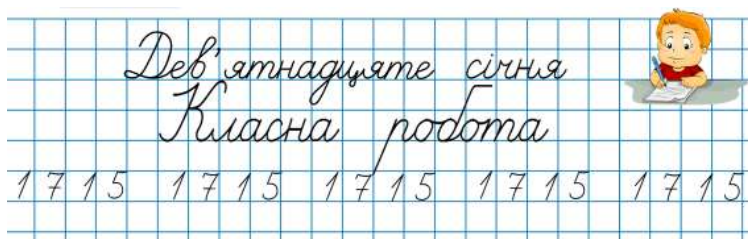 Дев'ятнадцяте січня
Класна робота
1 7 1 5 1 7 1 5 1 7 1 5 1 7 1 5 1 7 1 5